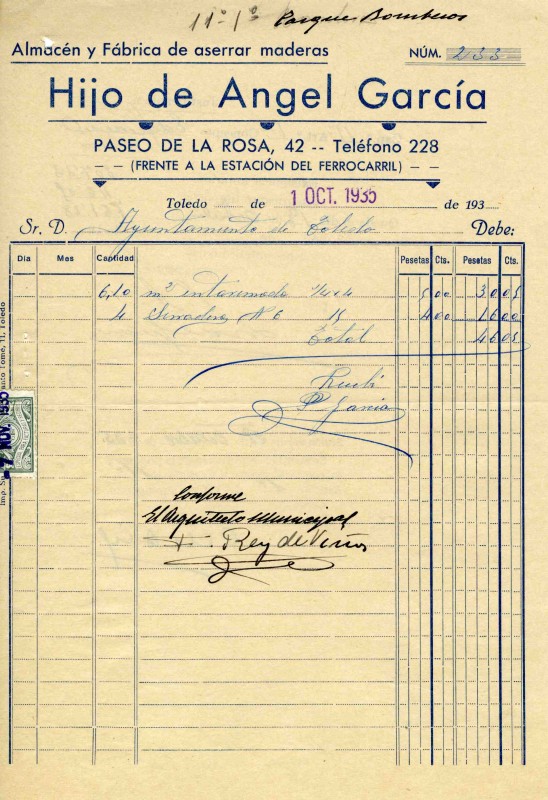 11º-1º Parque Bomberos
Almacén y Fábrica de aserrar maderas NÚM. 233
Hijo de Angel García
PASEO DE LA ROSA, 42 -- Teléfono 228
(FRENTE A LA ESTACIÓN DEL FERROCARRIL)
Toledo de 1 OCT. 1935 de 193
Sr. D. Ayuntamiento de Toledo Debe:
Día Mes Cantidad Pesetas Cts. Pesetas Cts.
6,10 m² entarimado 5 00 30 05
4 N 6 15 4 00 16 00
Total 46 05
Recibí
P. Garcia
7 NOV. 1935
Conforme
El Arquitecto Municipal
Rey de Viñas